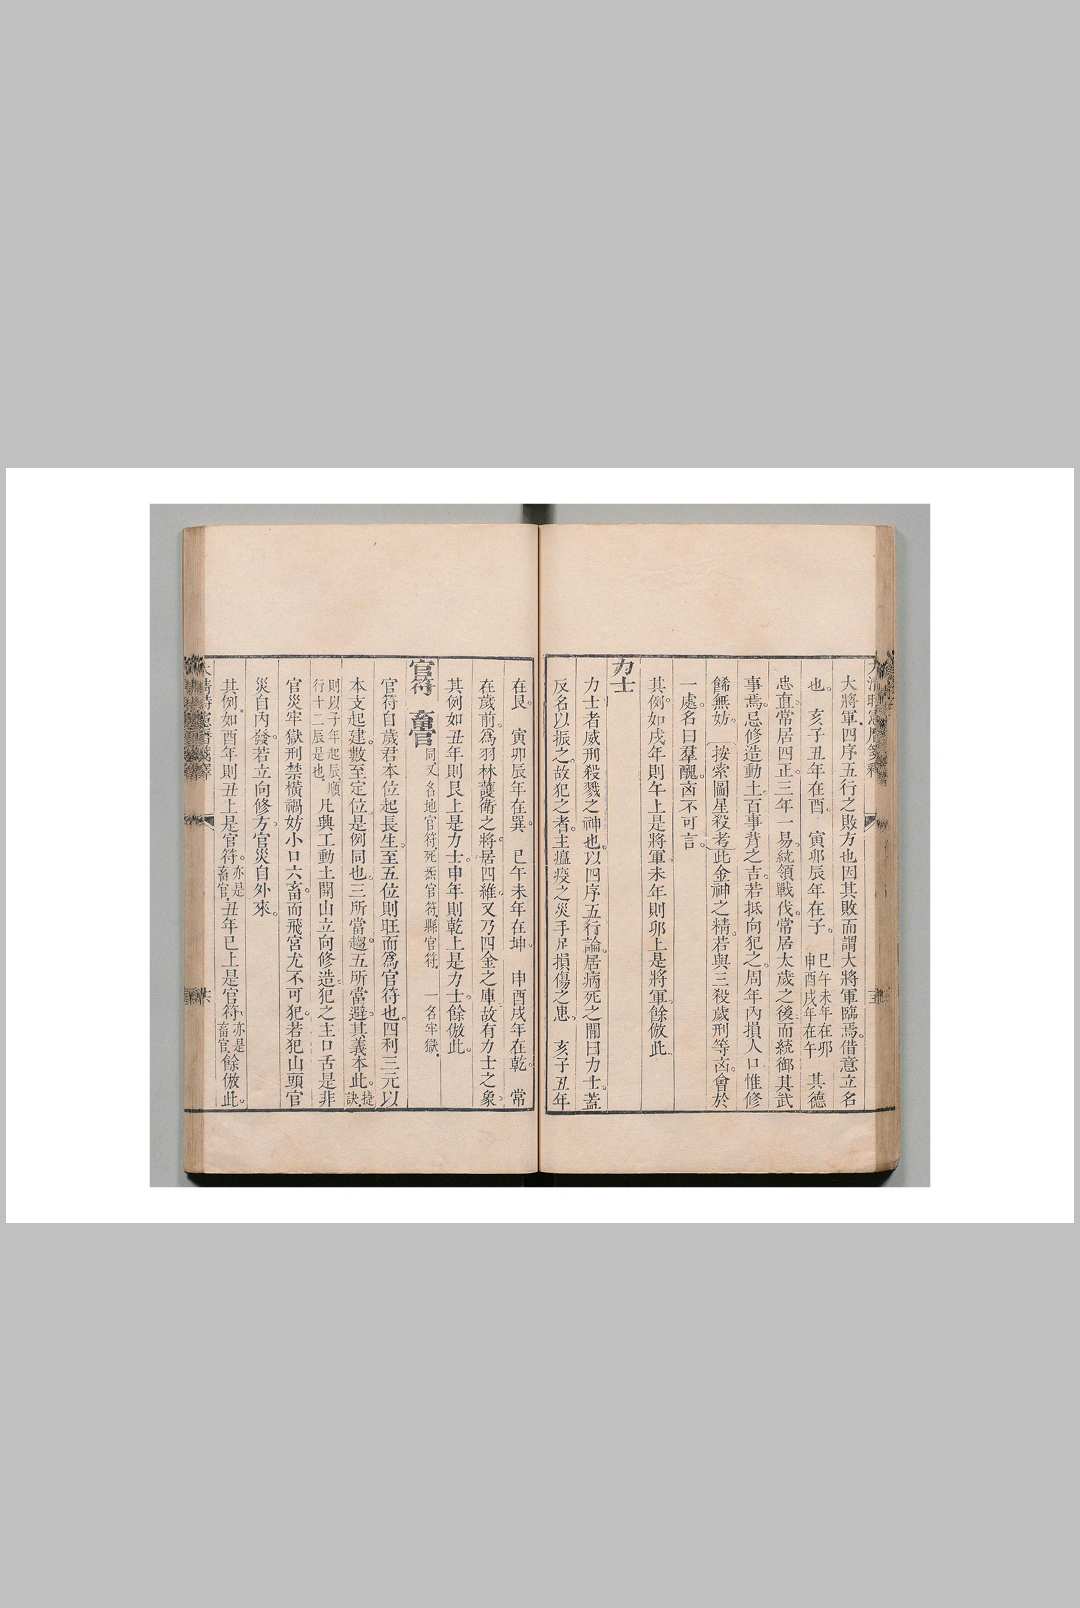 大將軍四序五行之敗方也因其敗而謂大將軍臨焉借意立名
也。亥子丑年在酉 寅卯辰年在子。巳午未年在卯 申酉戌年在午 其德
忠直常居四正三年一易統領戰伐常居太歲之後而統御其武
事焉忌修造動土百事背之吉若抵向犯之周年內損人口惟修
餙無妨。按索圖星殺考此金神之精若與三殺歲刑等凶會於
一處名曰羣醜凶不可言。
其例如戌年則午上是將軍未年則卯上是將軍餘倣此
力士
力士者威刑殺戮之神也以四序五行論居病死之間曰力士。蓋
反名以振之故犯之者主瘟疫之災手足損傷之患 亥子丑年
在艮。寅卯辰年在巽。巳午未年在坤 申酉戌年在乾。常
在歲前為羽林護衛之將居四維又乃四金之庫故有力士之象
其例如丑年則艮上是力士申年則乾上是力士餘倣此
官符 畜官 同又名地官符死炁官符縣官符 一名牢獄
官符自歲君本位起長生至五位則旺而為官符也四利三元以
本支起建數至定位是例同也三所當趨五所當避其義本此。捷訣
則以子年起辰順行十二辰是也 凡興工動土開山立向修造犯之主口舌是非
官災牢獄刑禁橫禍妨小口六畜而飛宮尤不可犯若犯山頭官
災自內發若立向修方官災自外來。
其例如酉年則丑上是官符。亦是畜官 丑年巳上是官符 亦是畜官 餘倣此。